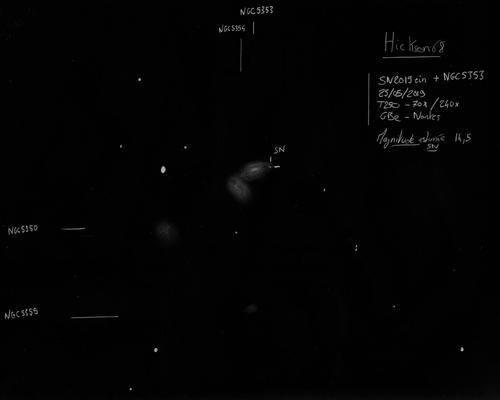 NGC5353
NGC5354
Hickson68
SN2019ein + NGC5353
29/05/2019
T250 - 70x / 240x
GBe - Nantes
Magnitude estimée 14,5
SN
SN
NGC5350
NGC5355